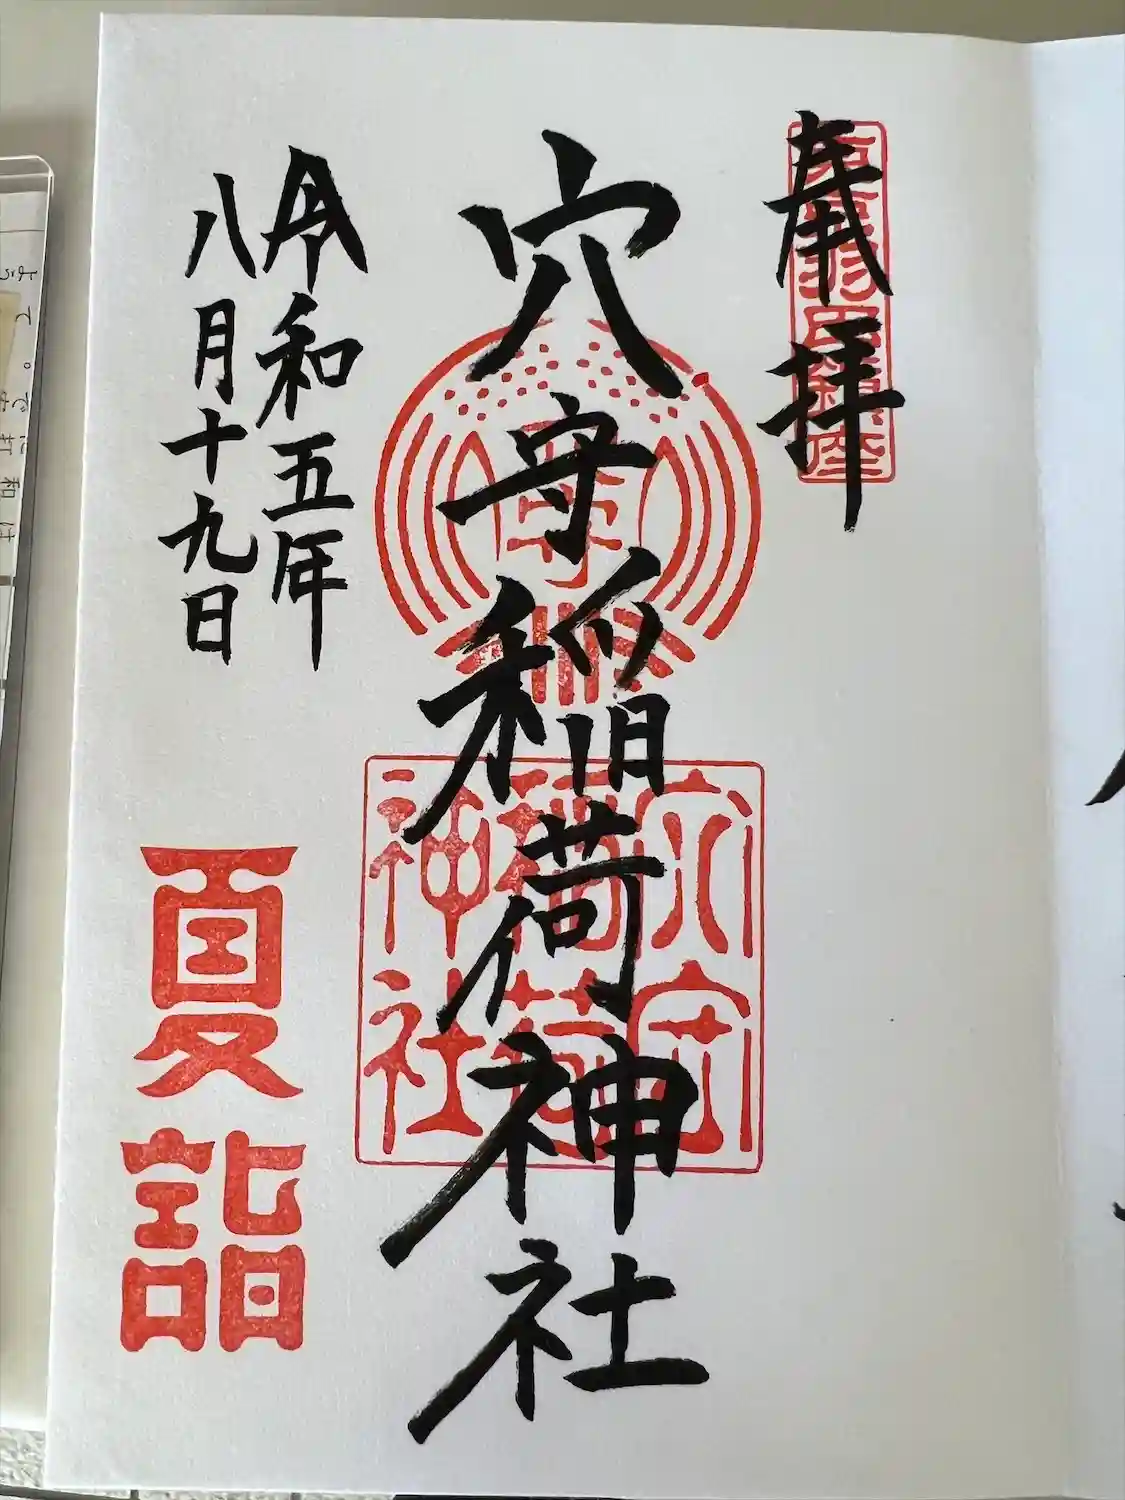 奉拝
東京羽田鎮座
穴守稲荷神社
守
穴守
稲荷
神社
令和五年
八月十九日
夏詣